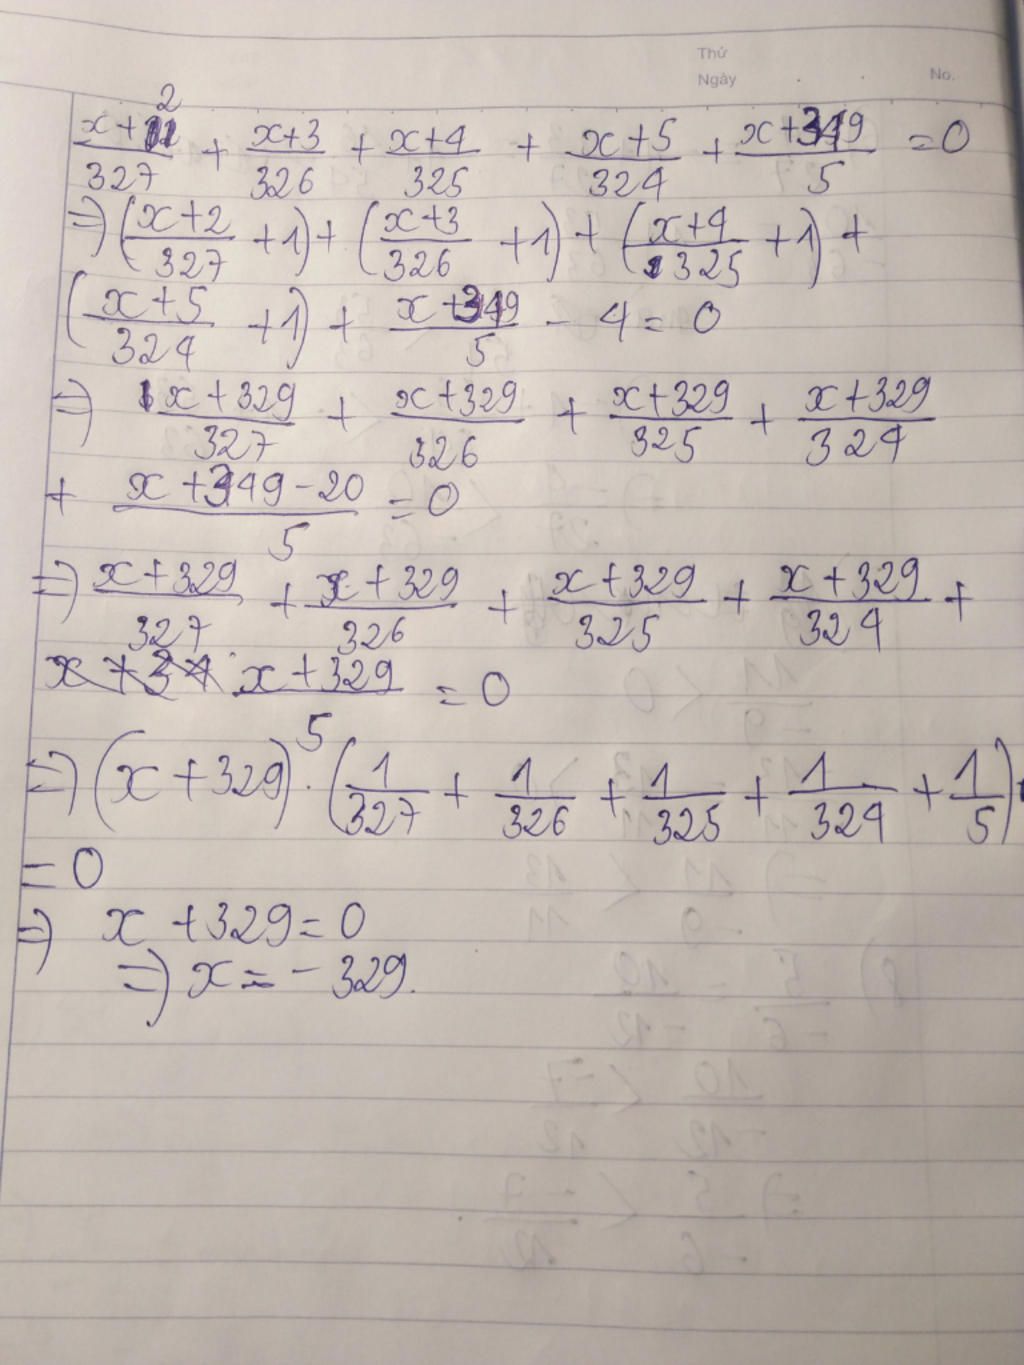 Thứ
Ngày No.
(x+2)/327 + (x+3)/326 + (x+4)/325 + (x+5)/324 + (x+349)/5 = 0
=> ((x+2)/327 + 1) + ((x+3)/326 + 1) + ((x+4)/325 + 1) +
((x+5)/324 + 1) + (x+349)/5 - 4 = 0
=> (x+329)/327 + (x+329)/326 + (x+329)/325 + (x+329)/324
+ (x+349-20)/5 = 0
=> (x+329)/327 + (x+329)/326 + (x+329)/325 + (x+329)/324 +
(x+329)/5 = 0
=> (x+329) . (1/327 + 1/326 + 1/325 + 1/324 + 1/5)
= 0
=> x+329 = 0
=> x = -329.